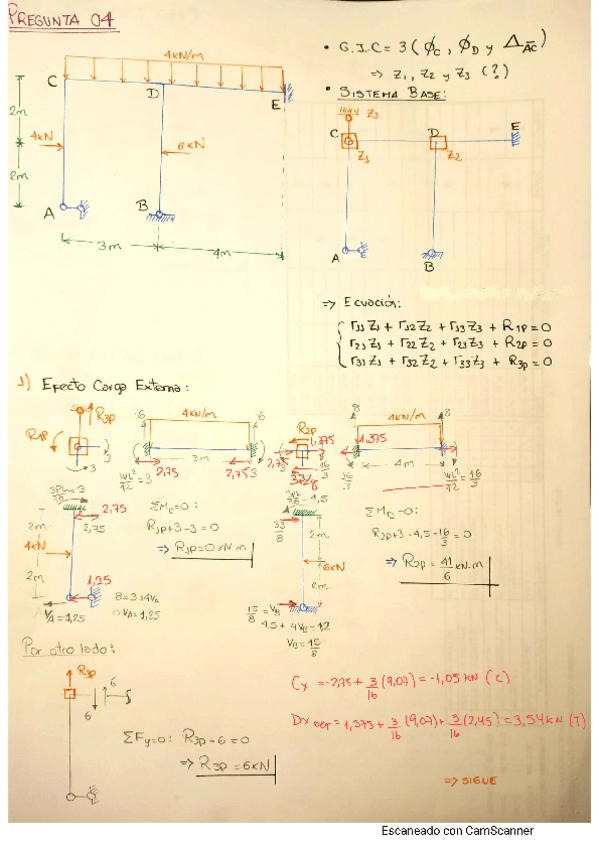 PREGUNTA 04
4kN/m
C
D
E
2m
4kN
6kN
2m
A
B
3m
4m
• G.I.C = 3 (ϕC, ϕD y ΔAC)
⇒ Z1, Z2 y Z3 (?)
• SISTEMA BASE:
Z3
C
D
E
Z1
Z2
A
B
⇒ Ecuación:
r11Z1 + r12Z2 + r13Z3 + R1P = 0
r21Z1 + r22Z2 + r23Z3 + R2P = 0
r31Z1 + r32Z2 + r33Z3 + R3P = 0
1) Efecto Carga Externa:
R3P
R1P
3
3
6
4kN/m
6
3m
WL²/12 = 3
2,75
2,75
3
R2P
1,375
2,75
3
16/3
8
4kN/m
8
1,375
4m
16/3
WL²/12 = 16/3
= 3
2,75
2,75
2m
4kN
2m
1,25
VA = 1,25
8 = 3+4VA
VA = 1,25
ΣMC=0:
R1P+3-3=0
⇒ R1P=0 kN.m
= 4,5
33/8
2m
6kN
2m
15/8 = VB
4,5 + 4VB = 12
VB = 15/8
ΣMD=0:
R2P+3-4,5-16/3=0
⇒ R2P = 41/6 kN.m
Por otro lado:
R3P
6
6
ΣFy=0: R3P-6=0
⇒ R3P=6kN
Cx = -2,75 + 3/16 (9,07) = -1,05 kN (C)
Dx der = 1,375 + 3/16 (9,07) + 3/16 (2,45) = 3,54 kN (T)
⇒ SIGUE
Escaneado con CamScanner